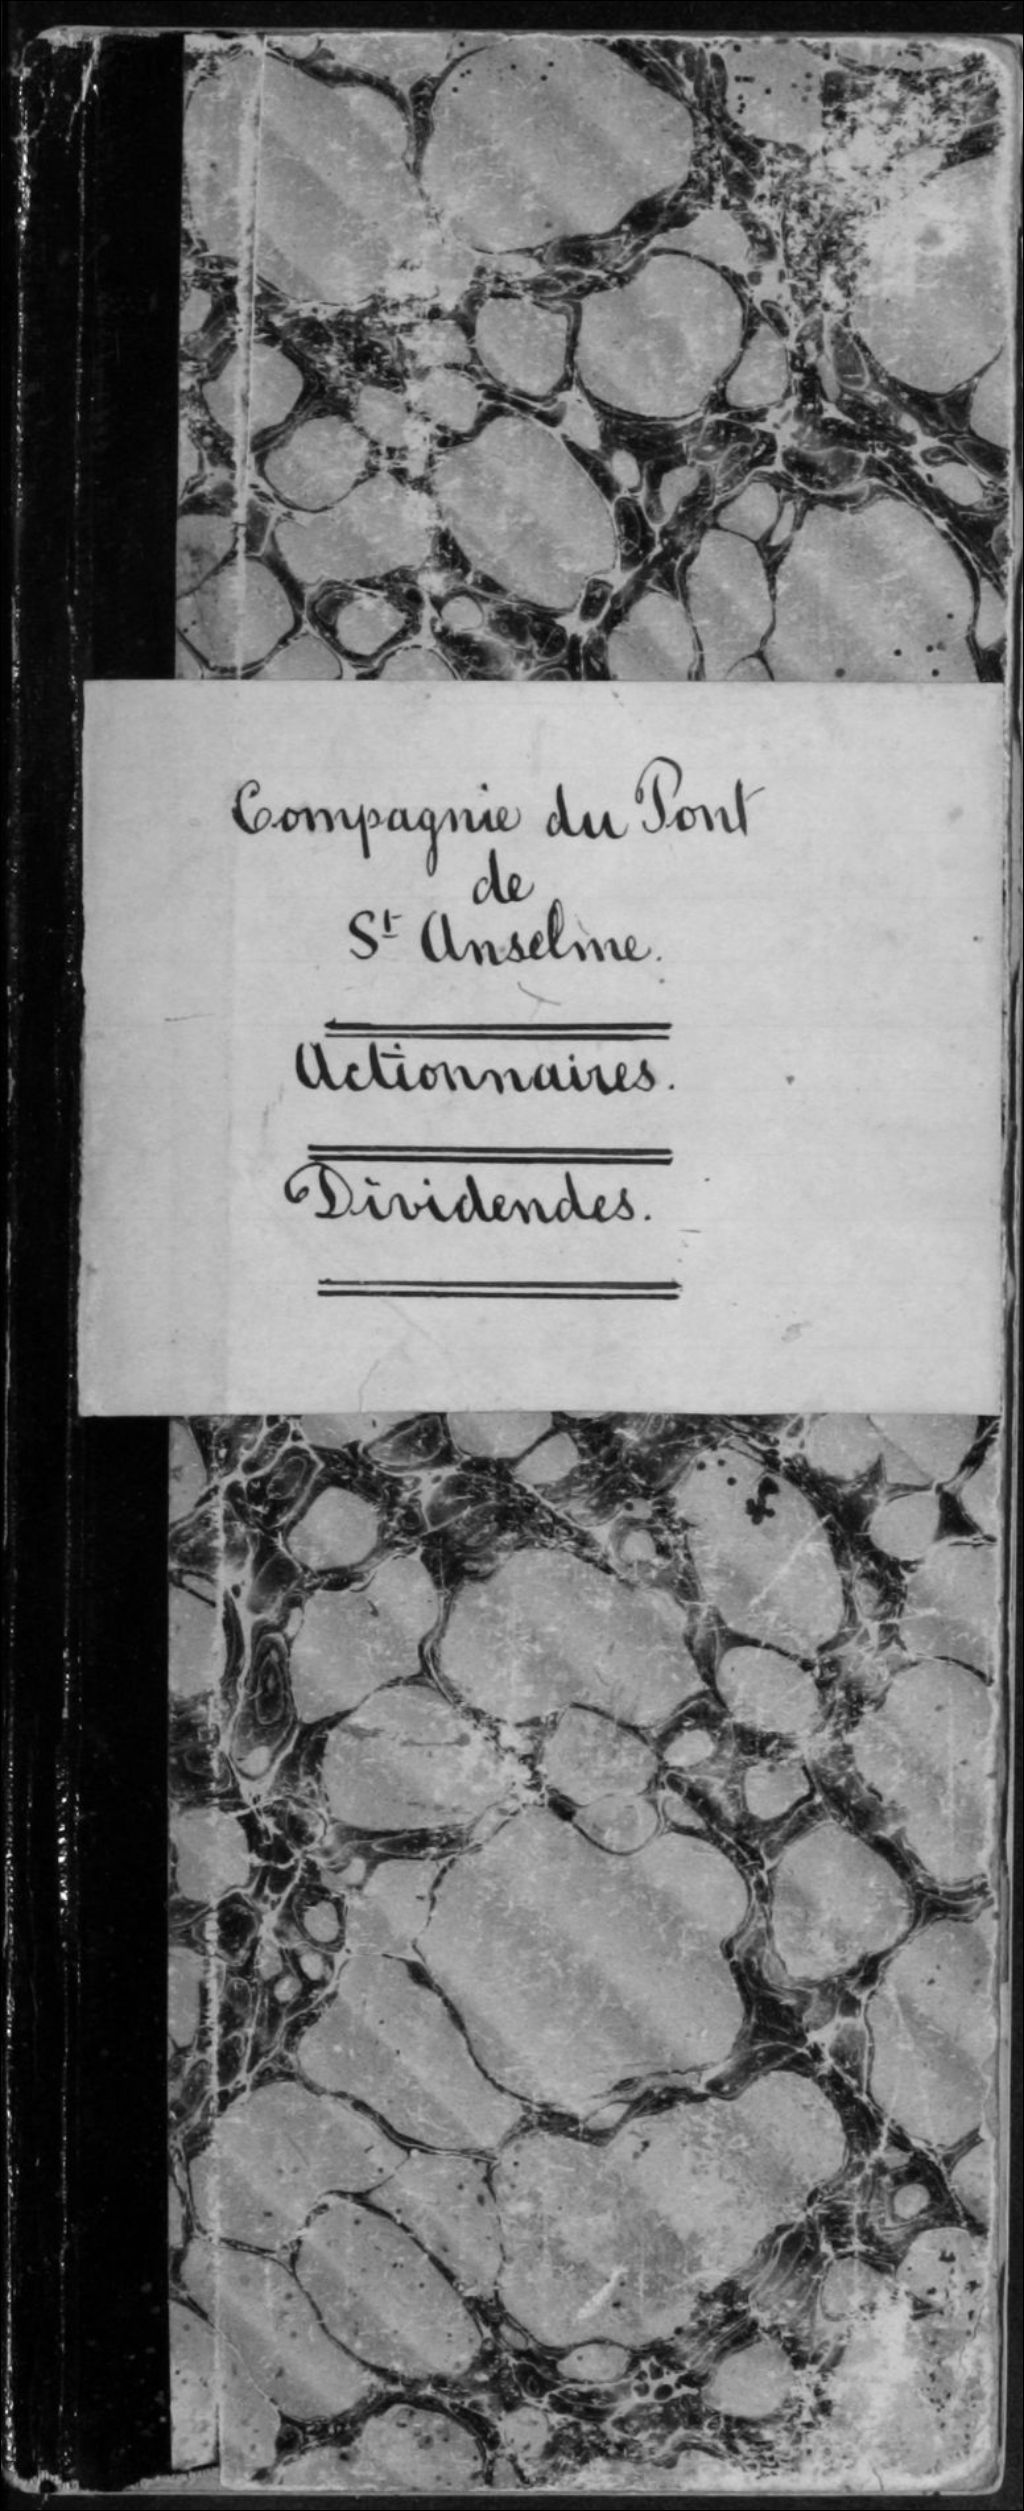 Compagnie du Pont
de
St Anselme.
Actionnaires.
Dividendes.